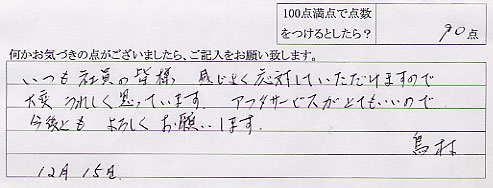 100点満点で点数
をつけるとしたら?
90点
何かお気づきの点がございましたら、ご記入をお願い致します。
いつも社員の皆様 感じよく応対していただけますので
大変うれしく思っています。アフタサービスがとてもいいので
今後とも よろしくお願いします。
島村
12月15日